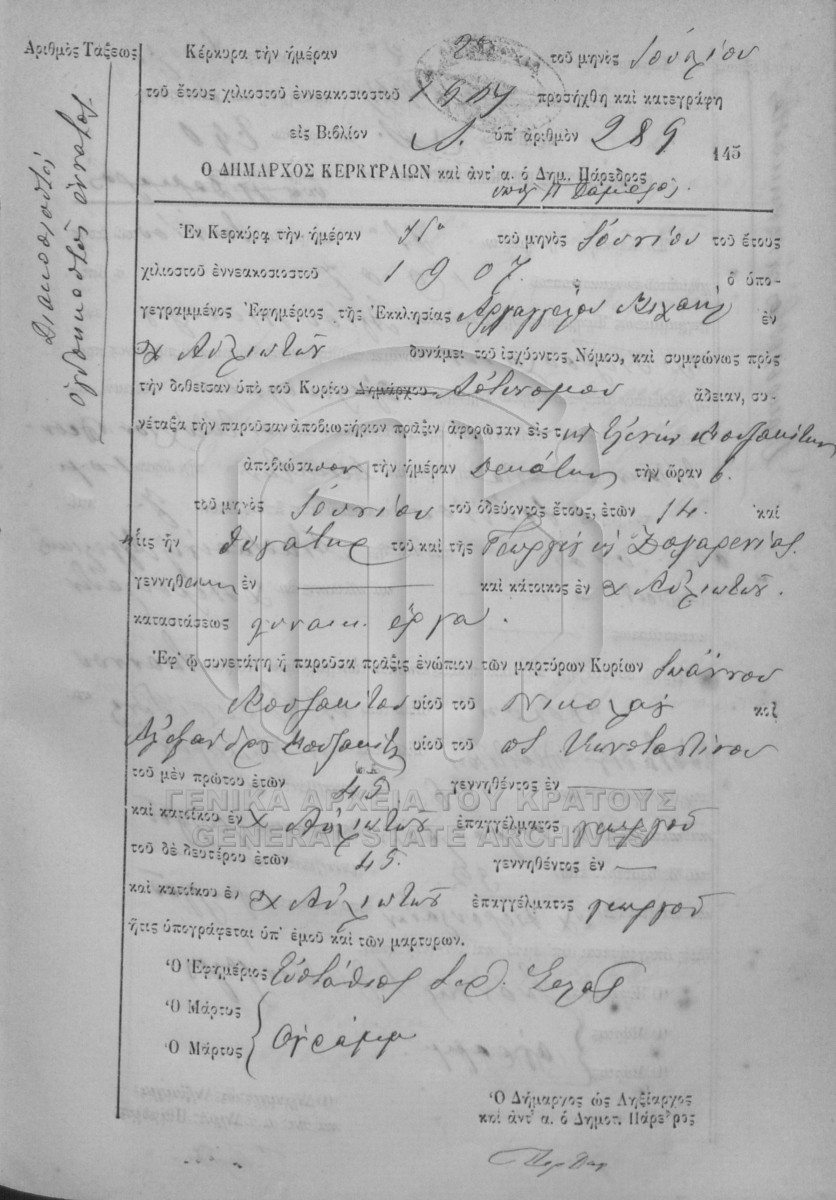 Ἀριθμὸς Τάξεως
Διακόσιοι
ὀγδοήκοντα ἐννέα
Κέρκυρα τὴν ἡμέραν τοῦ μηνὸς Ἰουλίου
τοῦ ἔτους χιλιοστοῦ ἐννεακοσιοστοῦ 1907 προσήχθη καὶ κατεγράφη
εἰς Βιβλίον Α. ὑπ' ἀριθμὸν 289
145
Ο ΔΗΜΑΡΧΟΣ ΚΕΡΚΥΡΑΙΩΝ καὶ ἀντ' α. ὁ Δημ. Πάρεδρος
Ἐν Κερκύρᾳ τὴν ἡμέραν τοῦ μηνὸς Ἰουνίου τοῦ ἔτους
χιλιοστοῦ ἐννεακοσιοστοῦ 1907. ὁ ὑπο-
γεγραμμένος Ἐφημέριος τῆς Ἐκκλησίας Ἀρχαγγέλου Μιχαήλ ἐν
χ Αὐλιωτῶν δυνάμει τοῦ ἰσχύοντος Νόμου, καὶ συμφώνως πρὸς
τὴν δοθεῖσαν ὑπὸ τοῦ Κυρίου Δημάρχου Ἀστυνόμου ἄδειαν, συ-
νέταξα τὴν παροῦσαν ἀποβιωτήριον πρᾶξιν ἀφορῶσαν εἰς την Ἑλένην Μουζακίτην
ἀποβιώσασαν τὴν ἡμέραν Δεκάτην τὴν ὥραν 6.
τοῦ μηνὸς Ἰουνίου τοῦ ὁδεύοντος ἔτους, ἐτῶν 14. καὶ
ἥτις ἦν θυγάτηρ τοῦ καὶ τῆς Γεωργίου
γεννηθεῖσα ἐν καὶ κάτοικος ἐν χ Αὐλιωτῶν.
καταστάσεως γυναικ. ἔργα.
Ἐφ' ᾧ συνετάγη ἡ παροῦσα πρᾶξις ἐνώπιον τῶν μαρτύρων Κυρίων Ἰωάννου
Μουζακίτου υἱοῦ τοῦ Νικολάου καὶ
Ἀλεξάνδρου Μουζακίτη υἱοῦ τοῦ Κωνσταντίνου
τοῦ μὲν πρώτου ἐτῶν 45 γεννηθέντος ἐν
καὶ κατοίκου ἐν χ Αὐλιωτῶν ἐπαγγέλματος γεωργοῦ
τοῦ δὲ δευτέρου ἐτῶν 45. γεννηθέντος ἐν
καὶ κατοίκου ἐν χ Αὐλιωτῶν ἐπαγγέλματος γεωργοῦ
ἥτις ὑπογράφεται ὑπ' ἐμοῦ καὶ τῶν μαρτυρων.
Ὁ Ἐφημέριος Εὐστάθιος
Ὁ Μάρτυς
Ὁ Μάρτυς
Ἀγράμμ
Ὁ Δήμαρχος ὡς Ληξίαρχος
καὶ ἀντ' α. ὁ Δημοτ. Πάρεδρος
ΓΕΝΙΚΑ ΑΡΧΕΙΑ ΤΟΥ ΚΡΑΤΟΥΣ
GENERAL STATE ARCHIVES